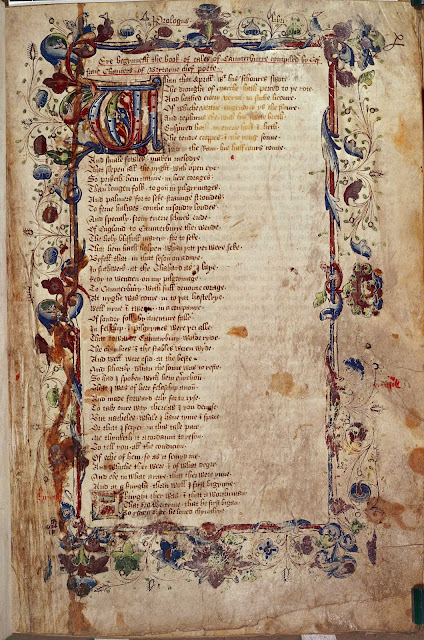 Prologus
Here begynneth the book of tales of Caunterburye compiled by Gef
fraie Chaucers of Brytayne chef poete
Whan that Aprill with his schoures swote
The drought of marche hath perced to the rote
And bathed every veyne in swiche licoure
Of whiche vertu engendred is the floure
And zephirus eke with his swete breth
Enspired hath in every holt & heth
The tendre croppes & the yong sonne
the Ram his half cours ronne
And smale foules maken melodye
That slepen all the nyght with open eye
So priketh hem nature in here corages
Than longen folk to goon in pilgrimages
And palmers for to seke straunge strondes
To ferne halwes couthe in sondry londes
And specially from every schires ende
Of Engelond to Caunterbury thei wende
The holy blisful martir for to seke
That hem hath holpen whan that thei were seke
Befell that in that seson on a day
In suthwerk at the Tabard as I lay
Redy to wenden on my pilgrimage
To Caunterbury with full devoute corage
At nyght was come in to that hostelrye
Wele nyne & twenti in a companye
Of sondry folk by aventure falle
In felschip & pilgrymes were thei alle
That toward Caunterbury wolde ryde
The chambres & the stables weren wyde
And wele were esed at the beste
And schortly whan the sonne was to reste
So had I spoken with hem everychon
That I was of here felaschip anon
And made forward erly for to ryse
To take oure way there as I you devyse
But natheles while I have tyme & space
Or that I ferther in this tale pace
Me thinketh it acordaunt to reson
To tell you all the condicion
Of eche of hem so as it semed me
And whiche thei were & of what degre
And eke in what aray that thei were inne
And at a knyght than will I first begynne
A knyght ther was & that a worthi man
That fro the tyme that he first began
To riden oute he loved chivalrye